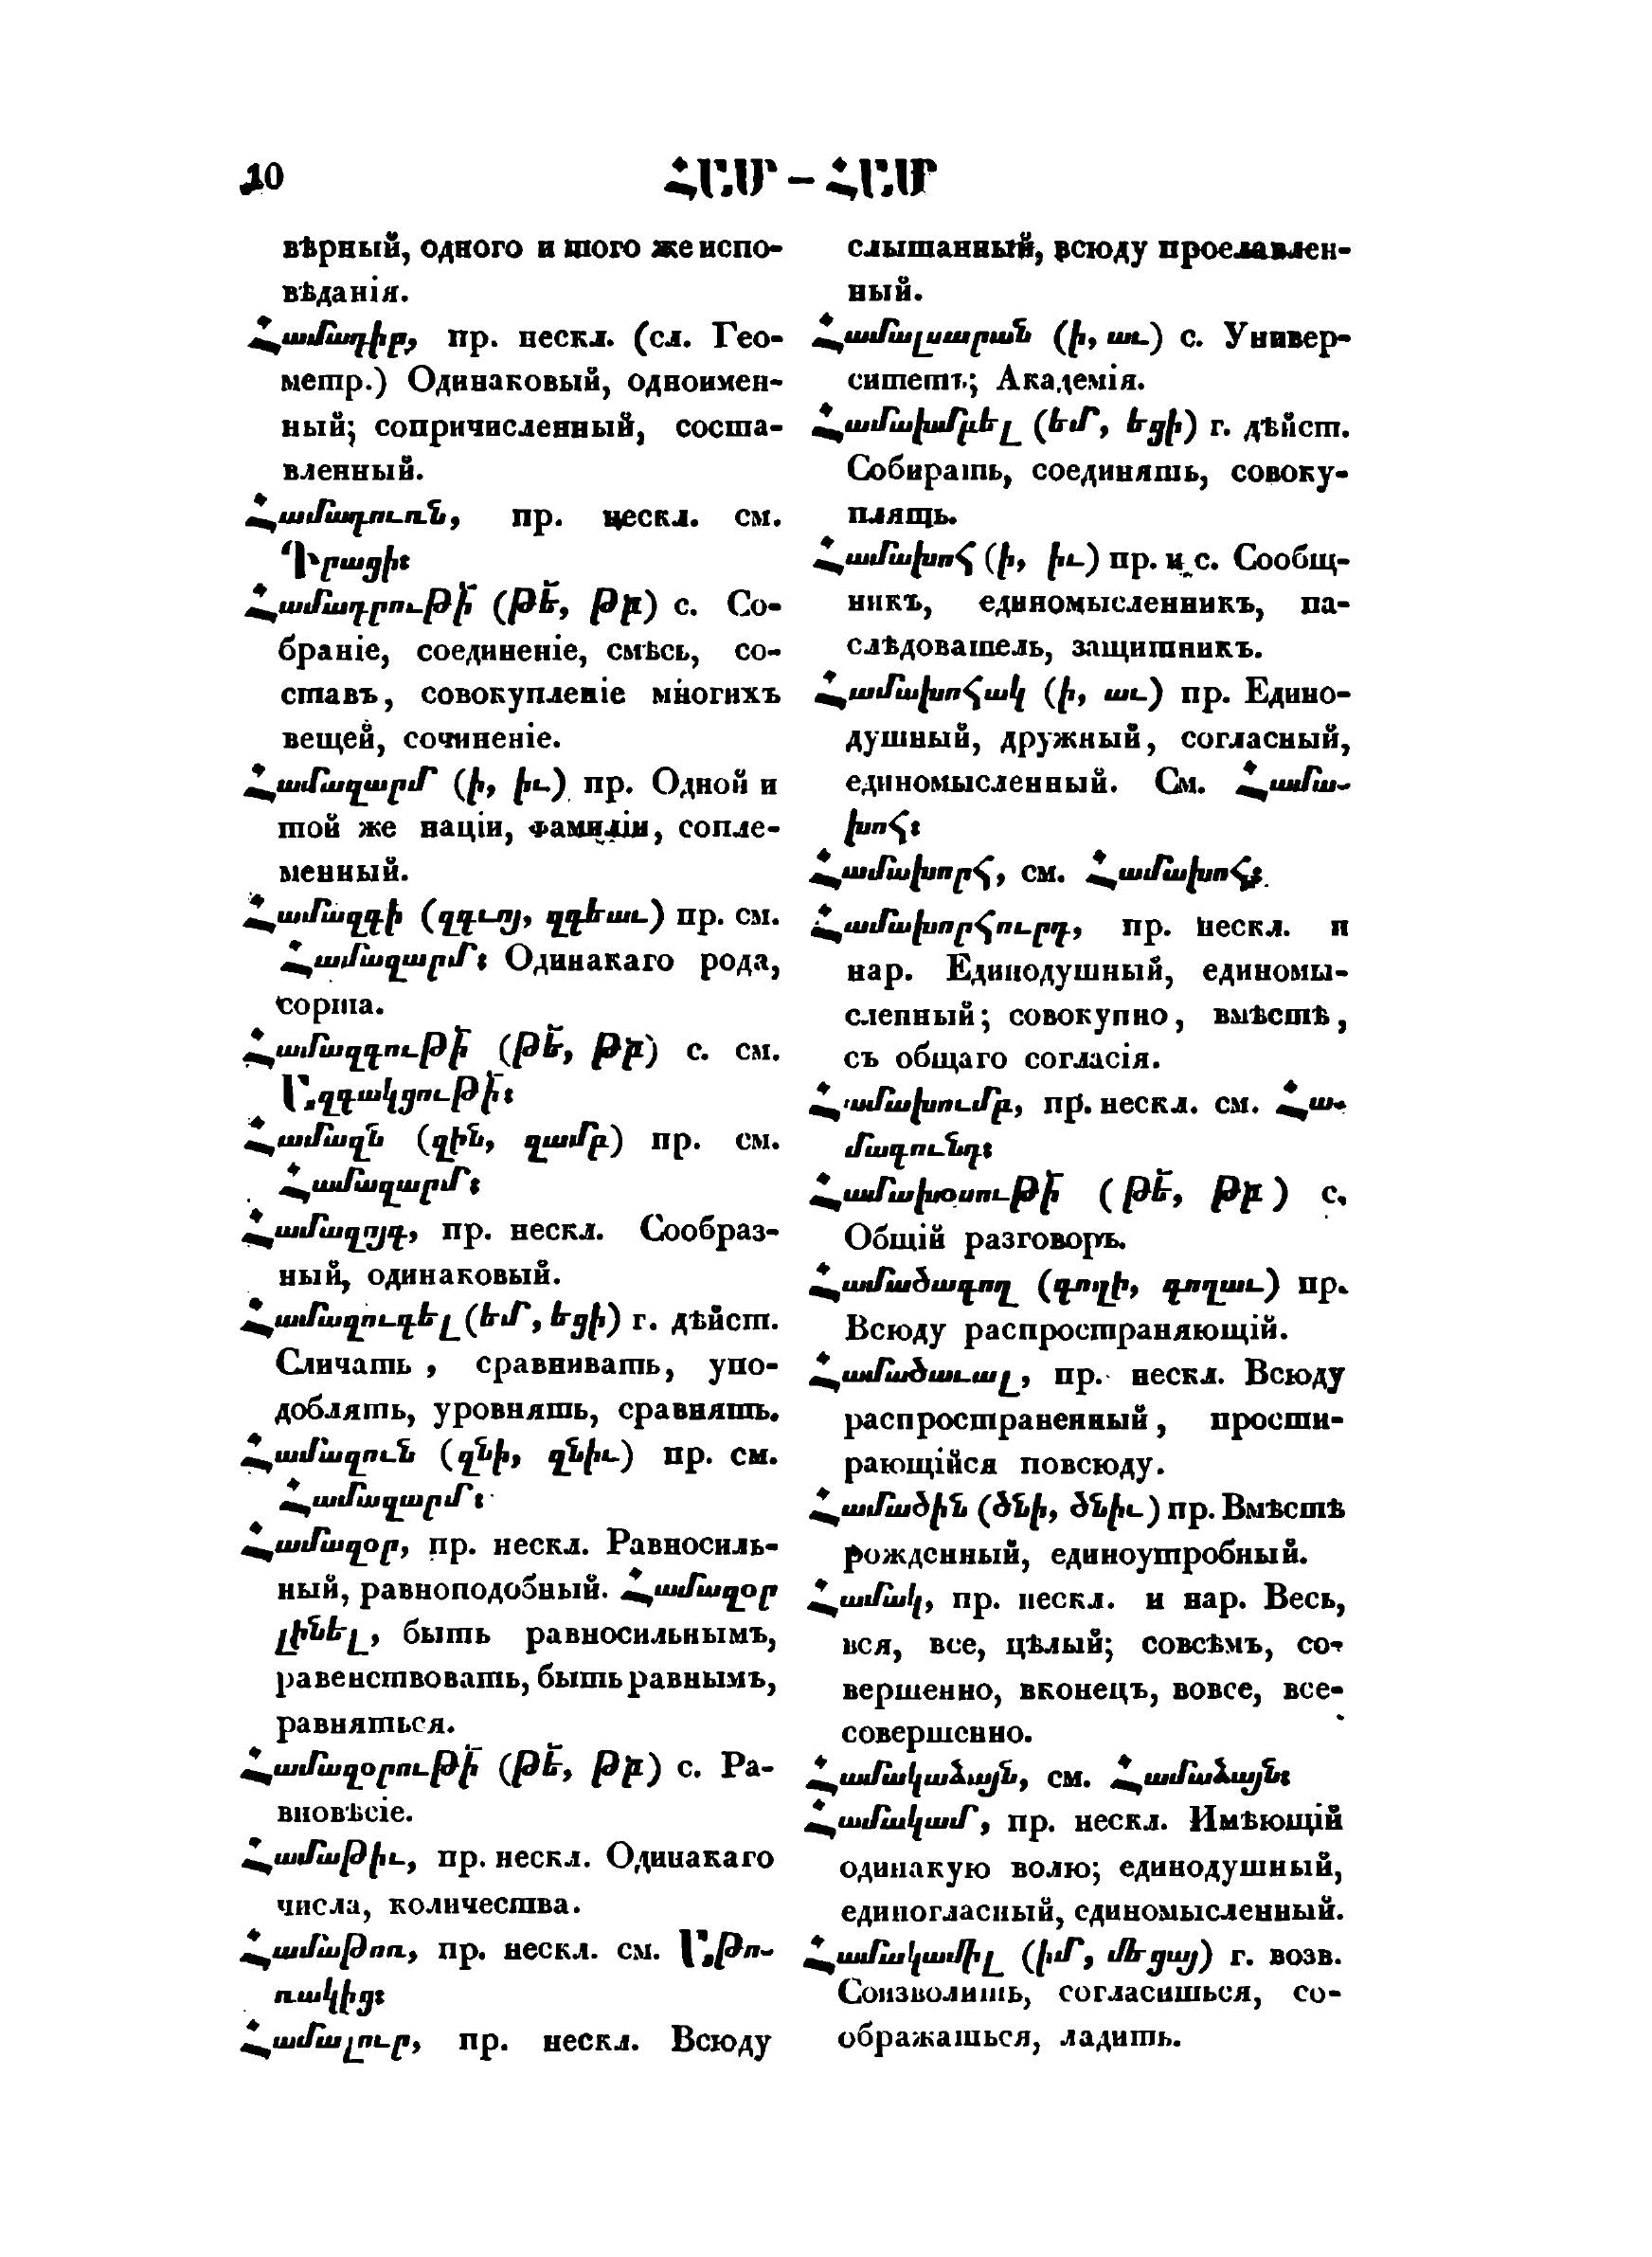 10
ՀԱՄ – ՀԱՄ
вѣрный, одного и того же испо-
вѣданія.
Համադիր, пр. нескл. (сл. Гео-
метр.) Одинаковый, одноимен-
ный; сопричисленный, соста-
вленный.
Համադուռն, пр. нескл. см.
Դիրացի։
Համադրութի՟ (թե՟, թբ) с. Со-
браніе, соединеніе, смѣсь, со-
ставъ, совокупленіе многихъ
вещей, сочиненіе.
Համազարմ (ի, իւ) пр. Одной и
той же націи, фамиліи, сопле-
менный.
Համազգի (զգւոյ, զգեաւ) пр. см.
Համազարմ։ Одинакаго рода,
сорта.
Համազգութի՟ (թե՟, թբ) с. см.
Ազգակցութի՟։
Համազն (զին, զամբ) пр. см.
Համազարմ։
Համազոյգ, пр. нескл. Сообраз-
ный, одинаковый.
Համազուգել (եմ, եցի) г. дѣйст.
Сличать, сравнивать, упо-
доблять, уровнять, сравнять.
Համազուն (զնի, զնիւ) пр. см.
Համազարմ։
Համազօր, пр. нескл. Равносиль-
ный, равноподобный. Համազօր
լինել, быть равносильнымъ,
равенствовать, быть равнымъ,
равняться.
Համազօրութի՟ (թե՟, թբ) с. Ра-
вновѣсіе.
Համաթիւ, пр. нескл. Одинакаго
числа, количества.
Համաթոռ, пр. нескл. см. Աթո-
ռակից։
Համալուր, пр. нескл. Всюду
слышанный, всюду прославлен-
ный.
Համալսարան (ի, աւ) с. Универ-
ситетъ; Академія.
Համախմբել (եմ, եցի) г. дѣйст.
Собирать, соединять, совоку-
плять.
Համախոհ (ի, իւ) пр. и с. Сообщ-
никъ, единомысленникъ, па-
слѣдователь, защитникъ.
Համախոհակ (ի, աւ) пр. Едино-
душный, дружный, согласный,
единомысленный. См. Համա-
խոհ։
Համախորհ, см. Համախոհ։
Համախորհուրդ, пр. нескл. и
нар. Единодушный, единомы-
сленный; совокупно, вмѣстѣ,
съ общаго согласія.
Համախումբ, пр. нескл. см. Հա-
մագունդ։
Համախօսութի՟ (թե՟, թբ) с.
Общій разговоръ.
Համածագող (գողի, գողաւ) пр.
Всюду распространяющій.
Համածաւալ, пр. нескл. Всюду
распространенный, прости-
рающійся повсюду.
Համածին (ծնի, ծնիւ) пр. Вмѣстѣ
рожденный, единоутробный.
Համակ, пр. нескл. и нар. Весь,
вся, все, цѣлый; совсѣмъ, со-
вершенно, вконецъ, вовсе, все-
совершенно.
Համակաձայն, см. Համաձայն։
Համակամ, пр. нескл. Имѣющій
одинакую волю; единодушный,
единогласный, единомысленный.
Համակամիլ (իմ, մեցայ) г. возв.
Соизволить, согласиться, со-
ображаться, ладить.